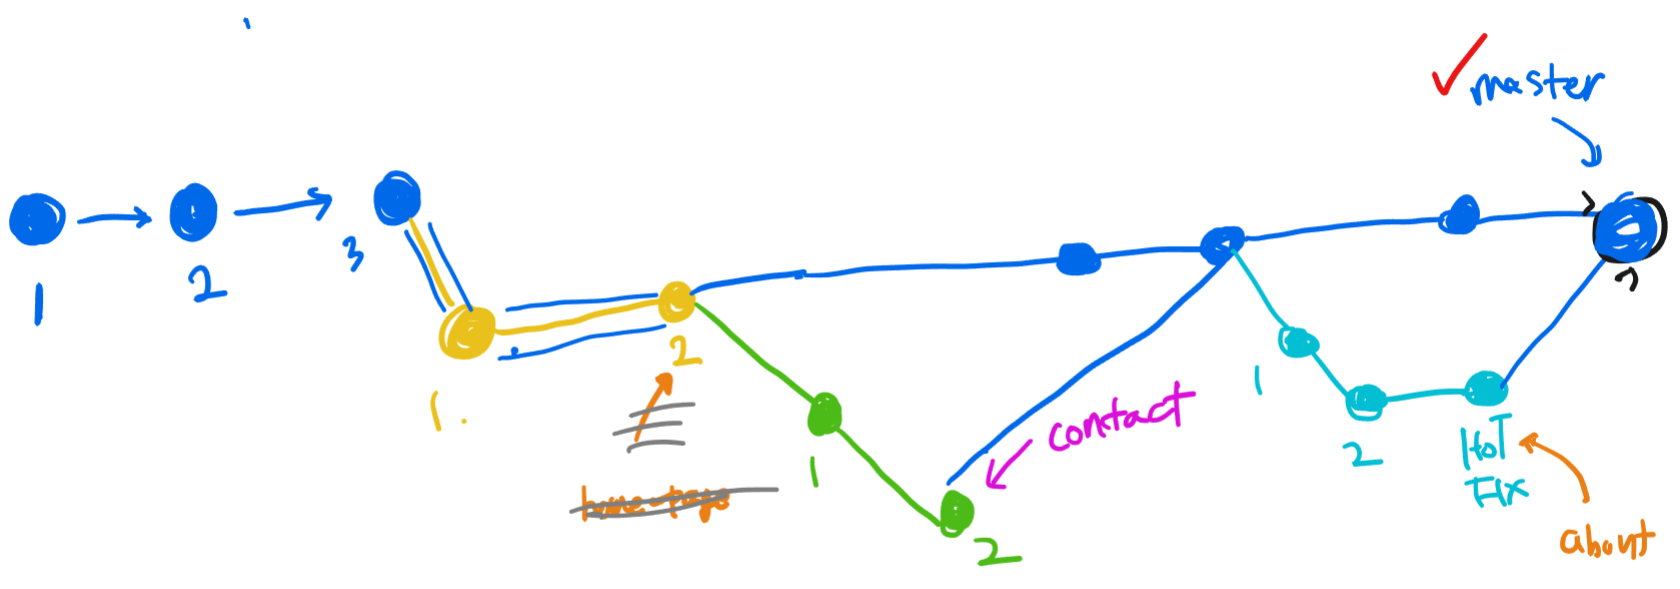 master
1
2
3
1.
2
1
2
contact
1
2
HoT
FIX
about